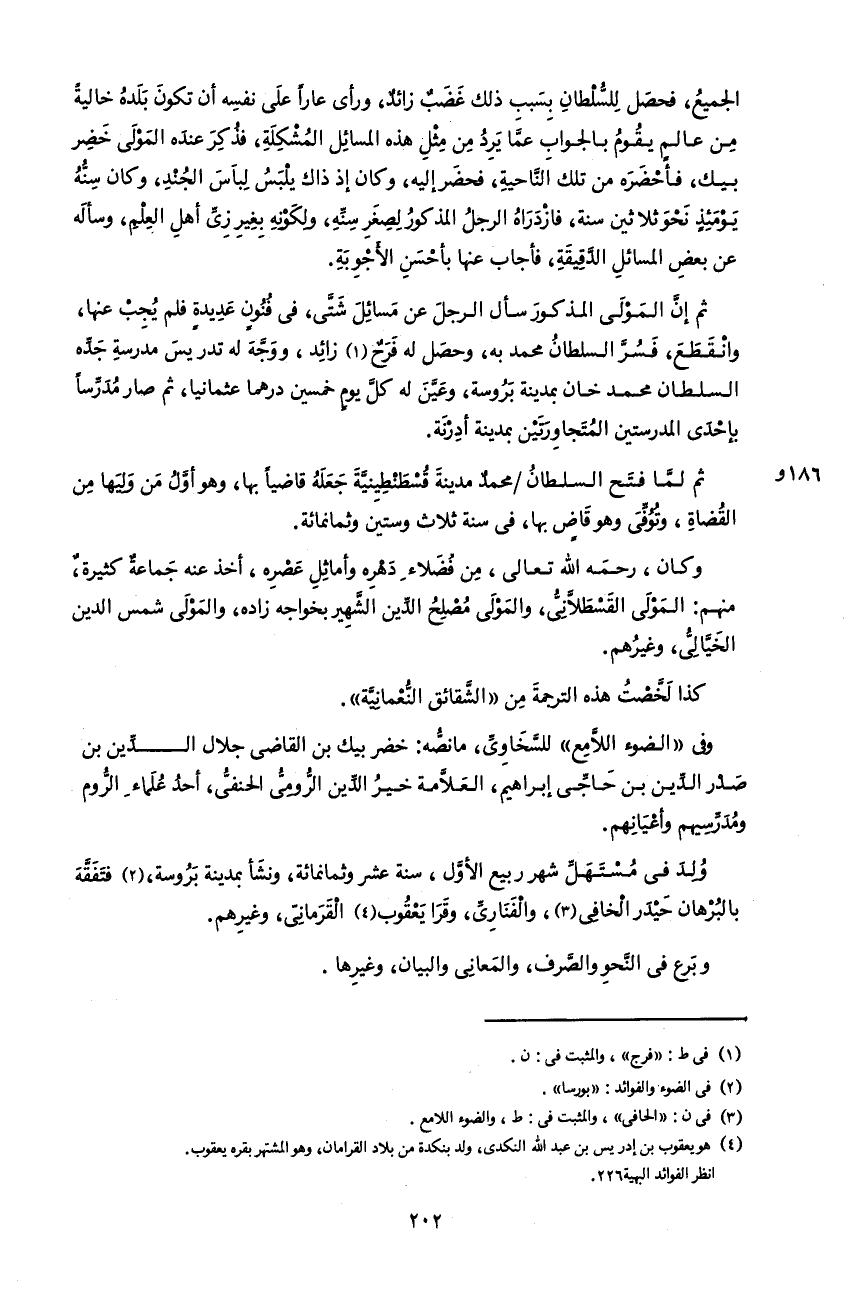 الجميعُ، فحصَل لِلسُّلْطان بِسَببِ ذلك غَضَبٌ زائدٌ، ورأى عاراً علَى نفسِه أن تكونَ بَلَدهُ خاليةً
مِـن عـالـم يـقُـومُ بـالجـواب عمَّا يَرِدُ مِن مِثْلِ هذه المسائل المُشْكِلَةِ، فذُكِرَ عنده المَوْلَى خَضِر
بـيـك، فـأَحْضَرَه من تلك النَّاحيةِ، فحضَر إليه، وكان إذ ذاك يلْبَسُ لِباسَ الجُنْدِ، وكان سِنُّهُ
يَـوْمَـئِذٍ نَحْوَ ثلاثين سنة، فازْدَرَاهُ الرجلُ المذكورُ لِصغَرِ سِنِّهِ، ولِكَوْنِهِ بِغيرِ زِىِّ أهلِ العِلْمِ، وسأله
عن بعضِ المسائلِ الدَّقِيقَةِ، فأجاب عنها بأحْسَنِ الأَجْوِبَةِ.
ثم إنَّ الـمَـوْلَـى الـمذكورَ سأل الرجلَ عن مَسائِلَ شَتَّى، فى فُنُونٍ عَدِيدةٍ فلم يُجِبْ عنها،
وانْـقَـطَـعَ، فَـسُـرَّ الـسلطانُ محمد به، وحصَل له فَرَحٌ (١) زائد ، ووَجَّهَ له تدريسَ مدرسةِ جَدِّه
السلـطـان محـمـد خـان بمدينة بَرُوسة، وعَيَّنَ له كلَّ يومٍ خمسين درهما عثمانيا، ثم صار مُدَرِّساً
بإحْدَى المدرستين المُتَجاورَتَيْن بمدينة أدِرْنَة.
ثم لـمَّـا فـتَـح السلـطانُ /محمدٌ مدينةَ قُسْطَنْطِينِيَّةَ جَعَلَهُ قاضياً بها، وهو أوَّلُ مَن وَلِيَها مِن
١٨٦و
القُضاةِ ، وتُوُفِّىَ وهو قَاضٍ بها، فى سنة ثلاث وستين وثمانمائة.
وكـان ، رحـمَـه الله تـعـالى ، مِن فُضَلاءِ دَهْرِه وأماثِلِ عَصْرِه ، أخذ عنه جَماعةٌ كثيرة،
منهـم: الـمَـوْلَى القَسْطَلاَّنِىُّ، والمَوْلَى مُصْلِحُ الدِّين الشَّهِير بخواجه زاده، والمَوْلَى شمس الدين
الخَيَّالِىُّ، وغيرُهم.
كذا لَخَّصْتُ هذه الترجمةَ مِن «الشَّقائق النُّعْمانِيَّة».
وفى «الـضوء اللاَّمِع» للسَّخاوِىِّ، مانصُّه: خضر بيك بن القاضى جلال الـــــــدِّين بن
صَـدْر الـدِّيـن بـن حَـاجِّـى إبـراهيم، العَلاَّمـة خيـرُ الدّين الرُّومِىُّ الحنفىُّ، أحدُ عُلَماءِ الرُّوم
ومُدَرِّسِيهم وأعْيَانِهم.
وُلِـدَ فـى مُـسْـتَـهَـلِّ شهر ربيع الأوَّل ، سنة عشر وثمانمائة، ونشَأ بمدينة بَرُوسة،(٢) فتَفَقَّهَ
بالبُرْهان حَيْدَر الخافِى(٣) ، والْفَنَارِىِّ، وقَرَا يَعْقُوب(٤) الْقَرَمانىّ، وغيرِهم.
وبَرع فى النَّحوِ والصَّرف، والمَعانِى والبيان، وغيرِها .
(١) فى ط : «فرج» ، والمثبت فى : ن .
(٢) فى الضوء والفوائد : «بورسا» .
(٣) فى ن : «الحافى» ، والمثبت فى : ط ، والضوء اللامع .
(٤) هو يعقوب بن إدريس بن عبد الله النكدى، ولد بنكدة من بلاد القرامان، وهو المشتهر بقره يعقوب.
انظر الفوائد البهية٢٢٦.
٢٠٢